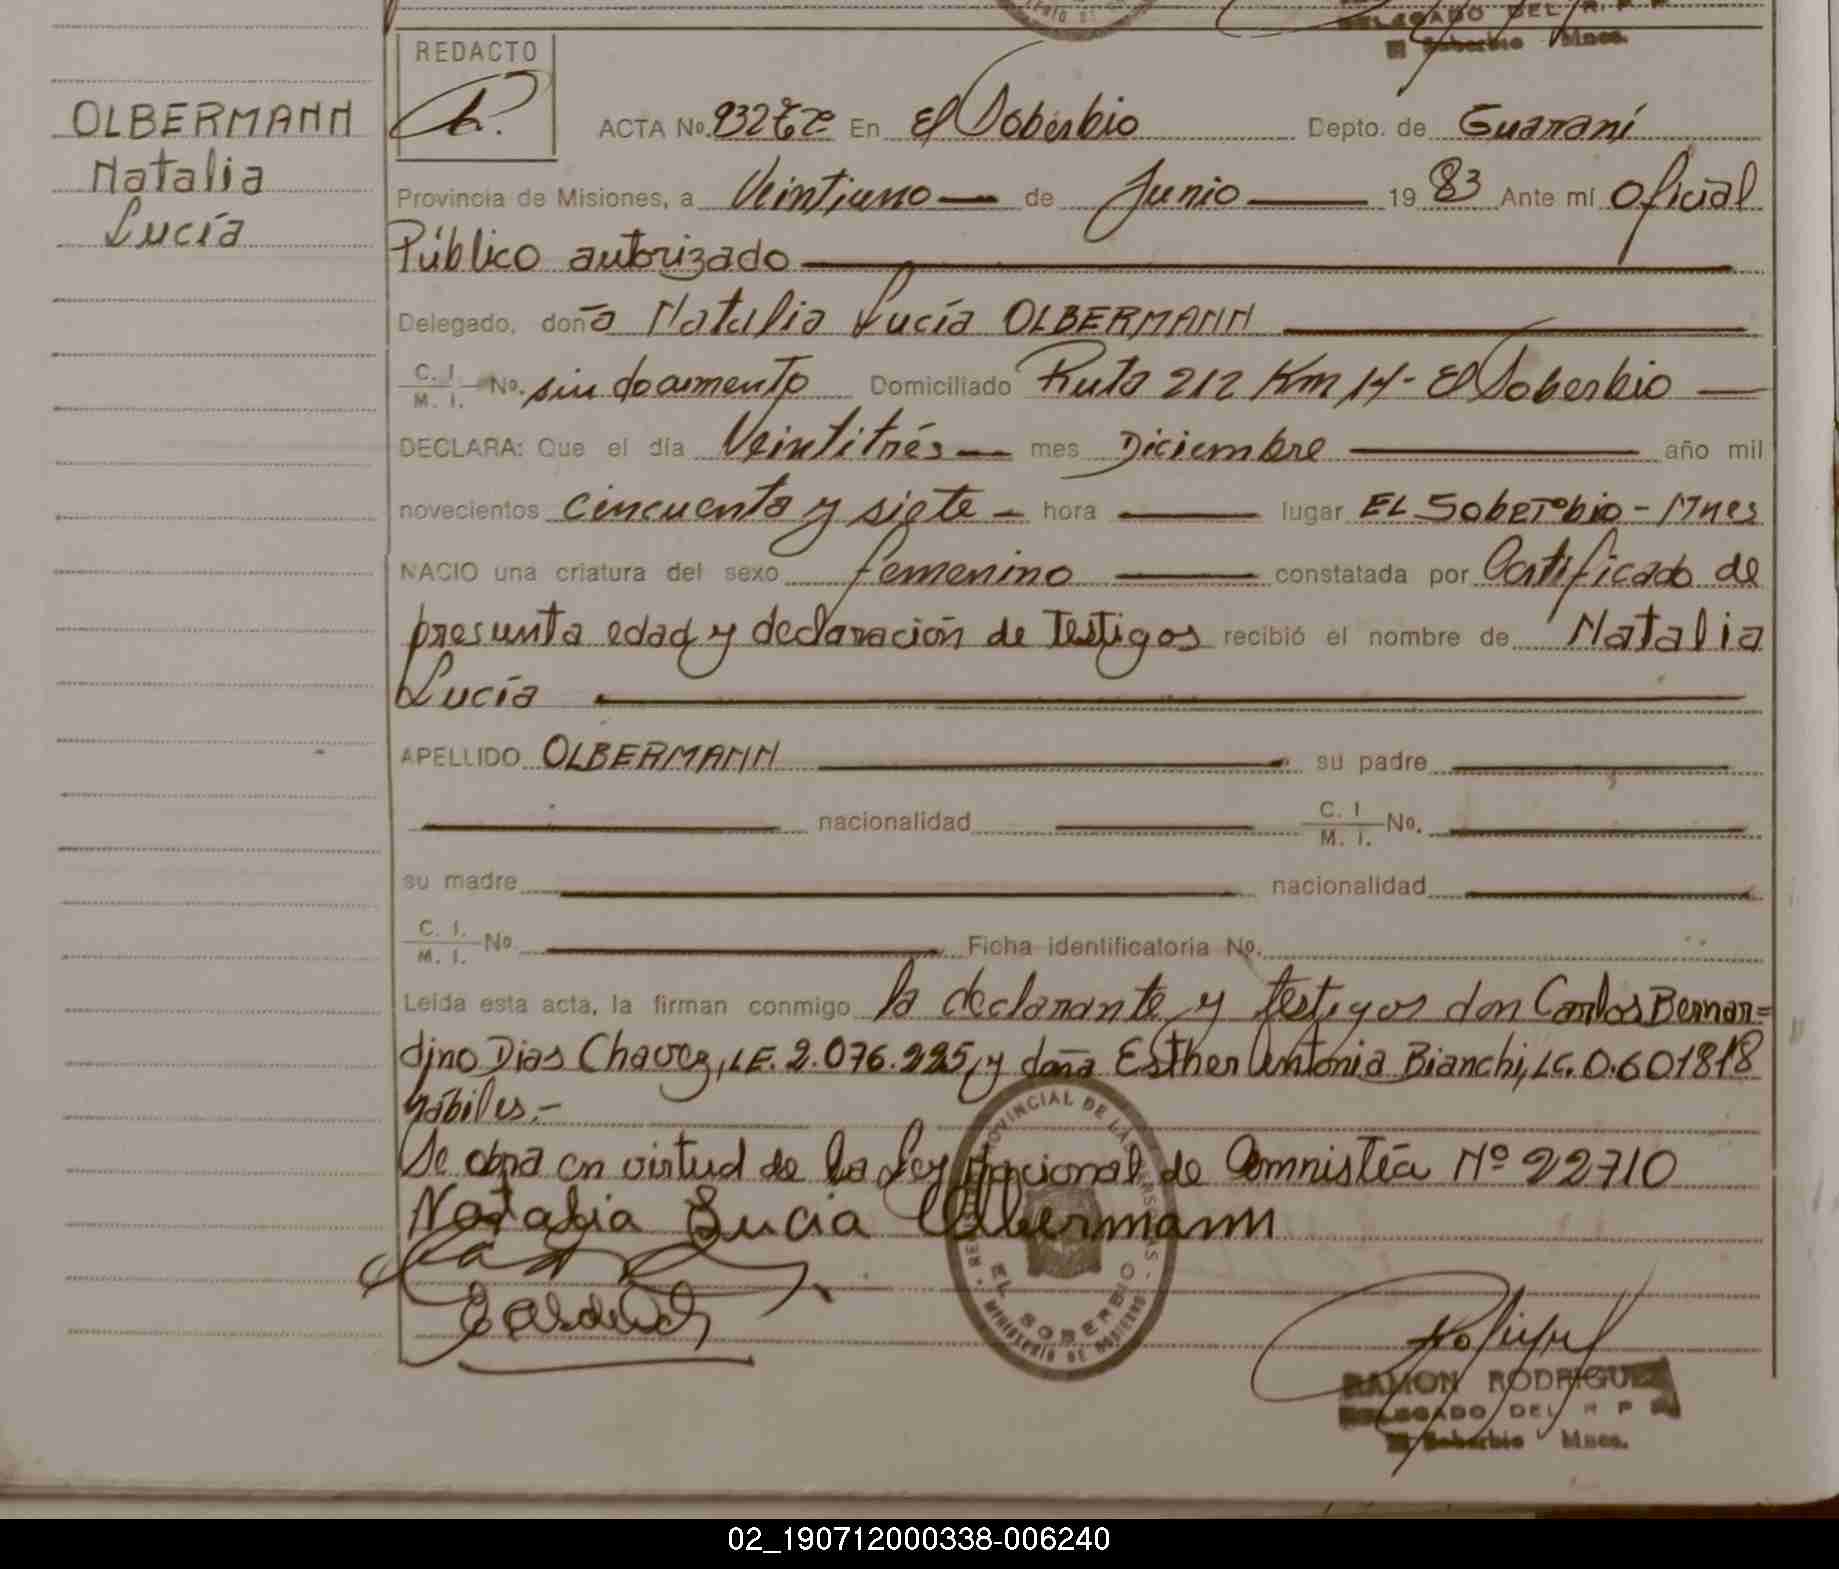 DELEGADO DEL R. P. P.
El Soberbio Mnes.
REDACTO
OLBERMANN
Natalia
Lucía
ACTA No. 932 En El Soberbio Depto. de Guaraní
Provincia de Misiones, a Veintiuno — de Junio — 19 83 Ante mí Oficial
Público autorizado —
Delegado, doña Natalia Lucía OLBERMANN —
C. I. M. I. No. sin documento Domiciliado Ruta 212 Km 14 - El Soberbio —
DECLARA: Que el día Veintitrés — mes Diciembre — año mil
novecientos cincuenta y siete — hora — lugar EL Soberbio - Mnes
NACIO una criatura del sexo femenino — constatada por Certificado de
presunta edad y declaración de Testigos recibió el nombre de Natalia
Lucía —
APELLIDO OLBERMANN — su padre —
— nacionalidad — C. I M. I. No. —
su madre — nacionalidad —
C. I. M. I. No. — Ficha identificatoria No.
Leída esta acta, la firman conmigo la declarante y testigos don Carlos Bernar=
dino Dias Chavez, LE. 2.076.225, y doña Esther Antonia Bianchi, LC. 0.601818
hábiles.-
Se obra en virtud de la Ley Nacional de Amnistía Nº 22710
Natalia Lucia Olbermann
EL SOBERBIO
MINISTERIO DE GOBIERNO
RAMON RODRIGUEZ
DELEGADO DEL R P P
El Soberbio Mnes.
02_190712000338-006240